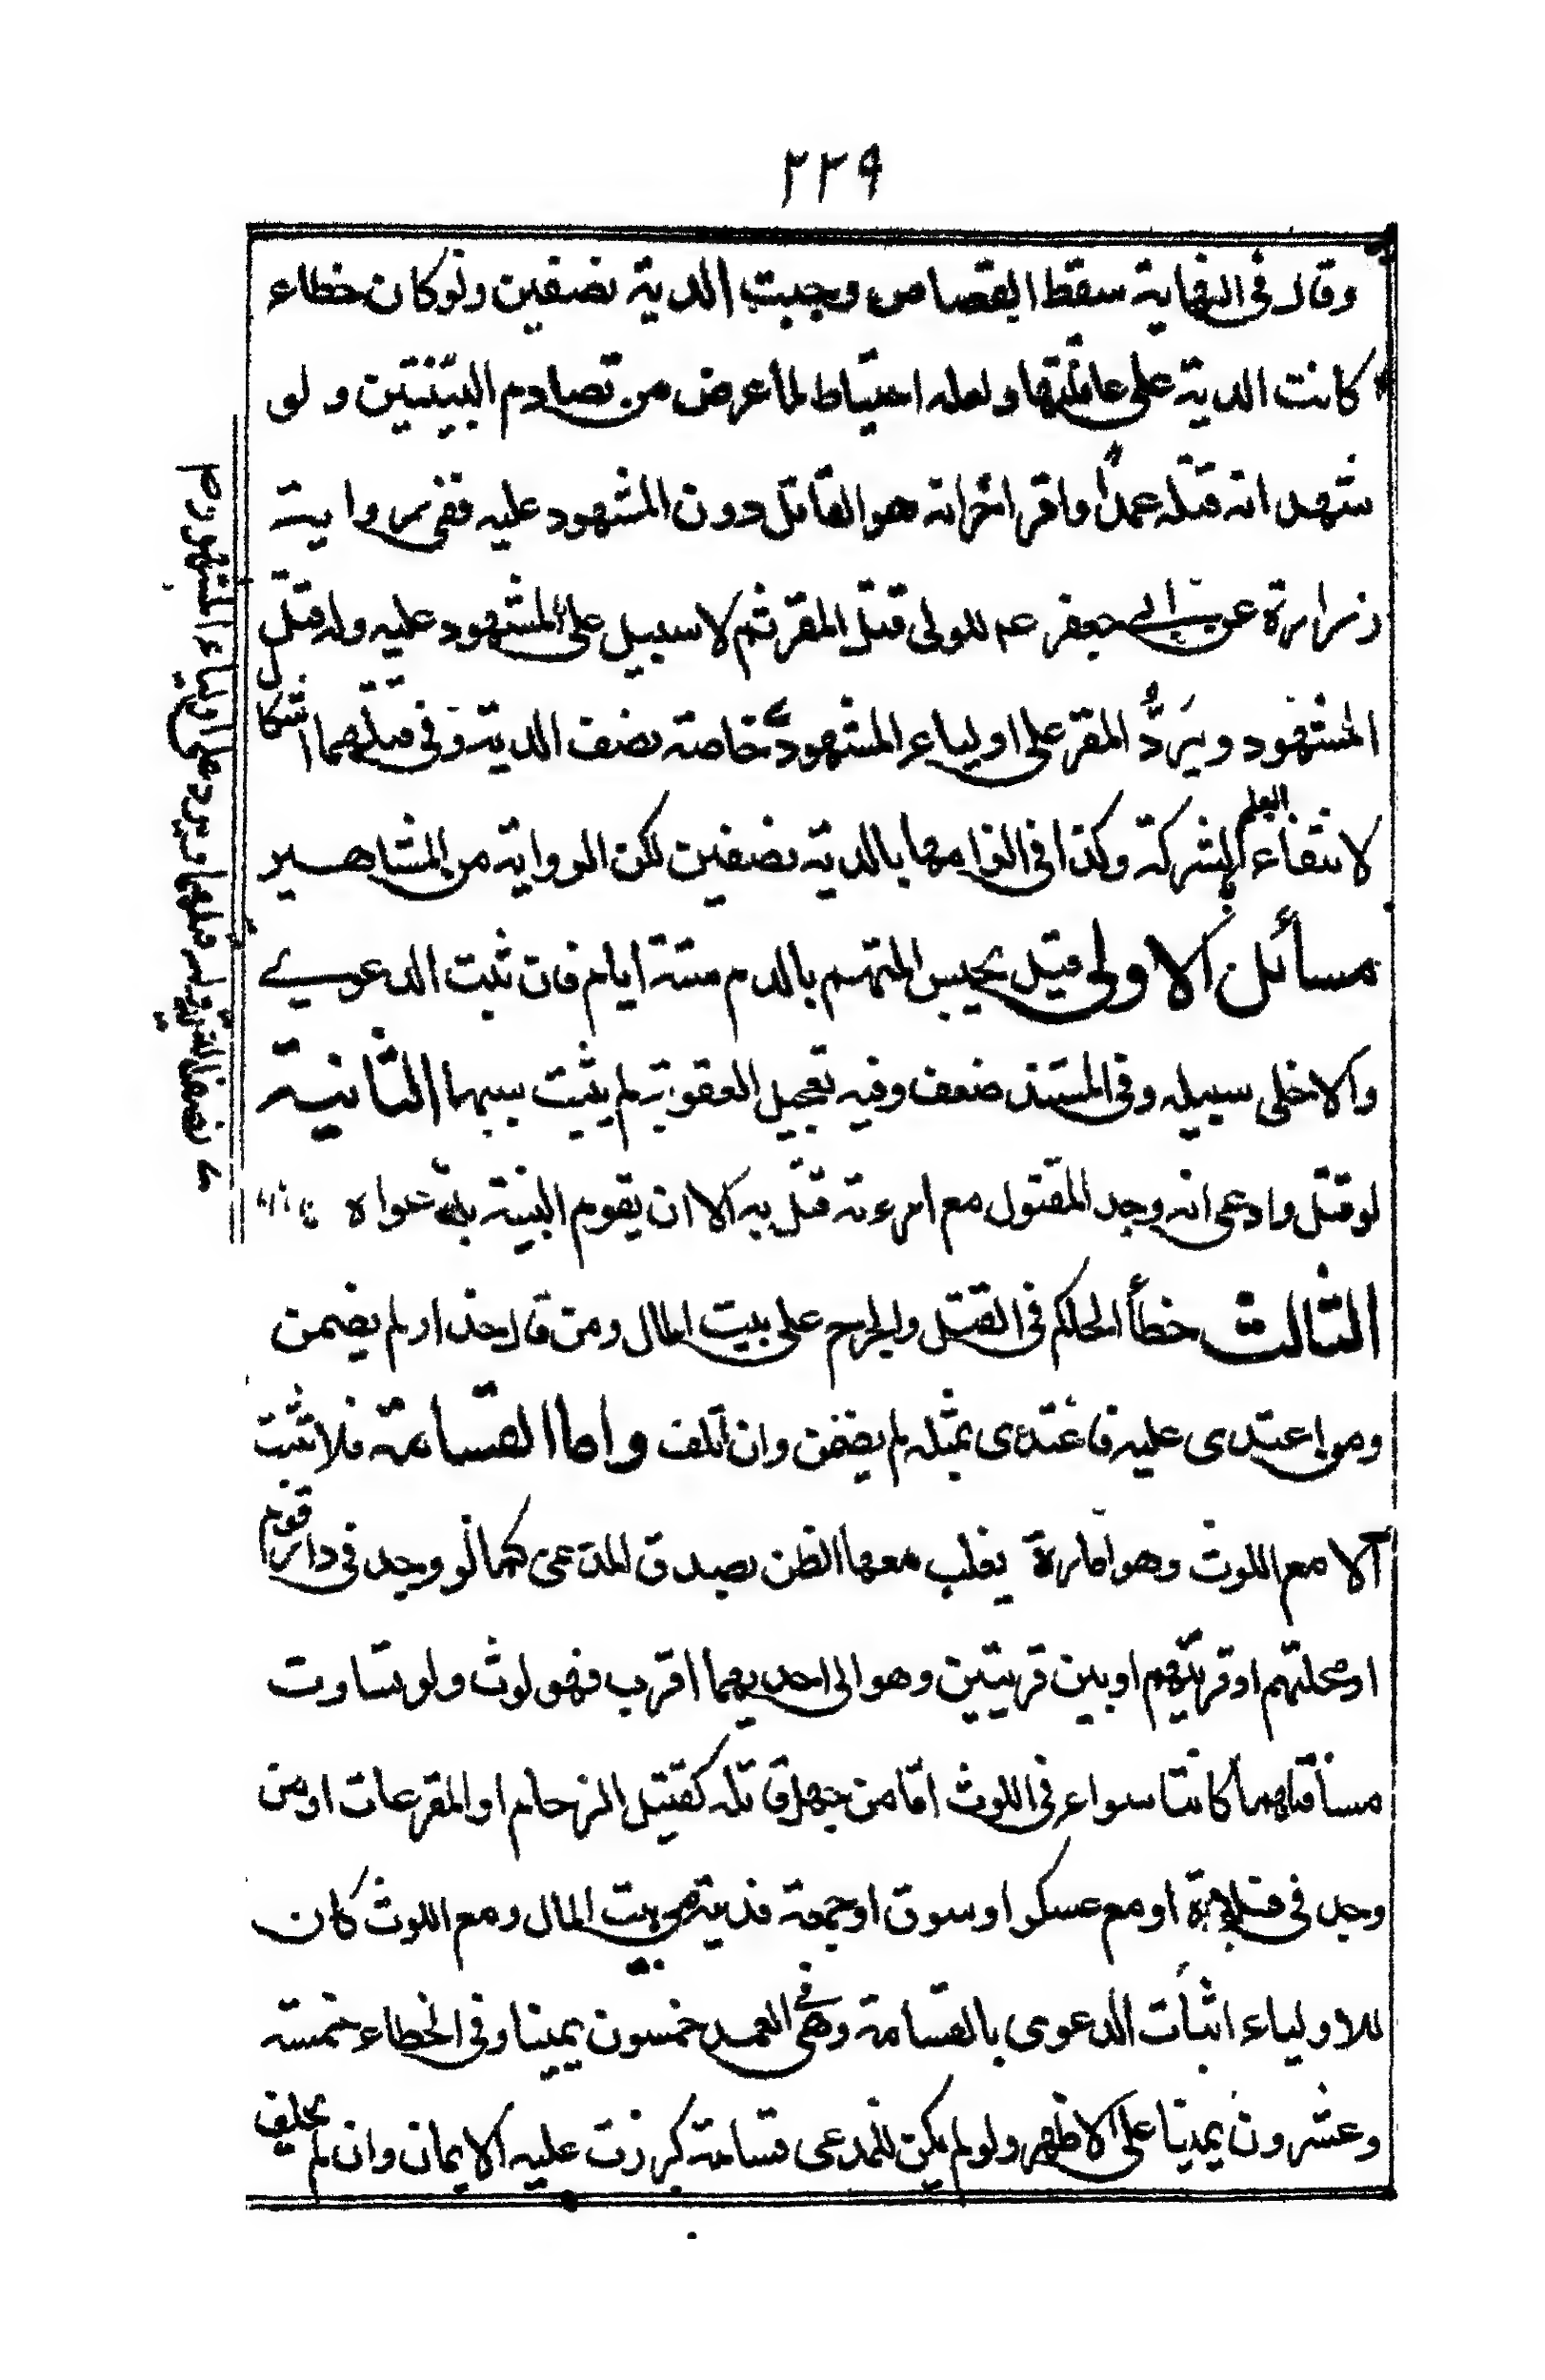 ٢٢٩
وقال فى النهاية سقط القصاص وجبت الدية نصفين ولو كان خطاء
كانت الدية على عاقلتهما ولعله احتياط لما عرض من تصادم البينتين و لو
شهد انه قتله عمدا واقر اخر انه هو القاتل دون المشهود عليه ففى رواية
زرارة عن ابى جعفر عم للولى قتل المقر ثم لا سبيل على المشهود عليه وله قتل
المشهود ويردّ المقر على اولياء المشهود خاصة نصف الدية وفى قتلهما اشكال
لانتفاء العلم بالشركة وكذا فى الزامهما بالدية نصفين لكن الرواية من المشاهير
مسائل الاولى قيل يحبس المتهم بالدم ستة ايام فان ثبت الدعوى
والا خلى سبيله وفى المستند ضعف وفيه تعجيل العقوبة لم يثبت سببها الثانية
لو قتل وادعى انه وجد المقتول مع امرءته قتل به الا ان يقوم البينة بدعواه
الثالث خطأ الحاكم فى القتل والجرح على بيت المال ومن قال حذار لم يضمن
ومن اعتدى عليه فاعتدى بمثله لم يضمن وان تلف واما القسامة فلا تثبت
الا مع اللوث وهو امارة يغلب معها الظن بصدق المدعى كما لو وجد فى دار قوم
او محلتهم او قريتهم او بين قريتين وهو الى احديهما اقرب فهو لوث ولو تساوت
مسافتهما كانتا سواء فى اللوث اما من جهل قاتله كقتيل الزحام او المفزعات او من
وجد فى فلاة او مع عسكر او سوق او جمعة فديته من بيت المال ومع اللوث كان
للاولياء اثبات الدعوى بالقسامة وهى فى العمد خمسون يمينا وفى الخطاء خمسة
وعشرون يمينا على الاظهر ولو لم يكن للمدعى قسامة كررت عليه الايمان وان لم يحلف